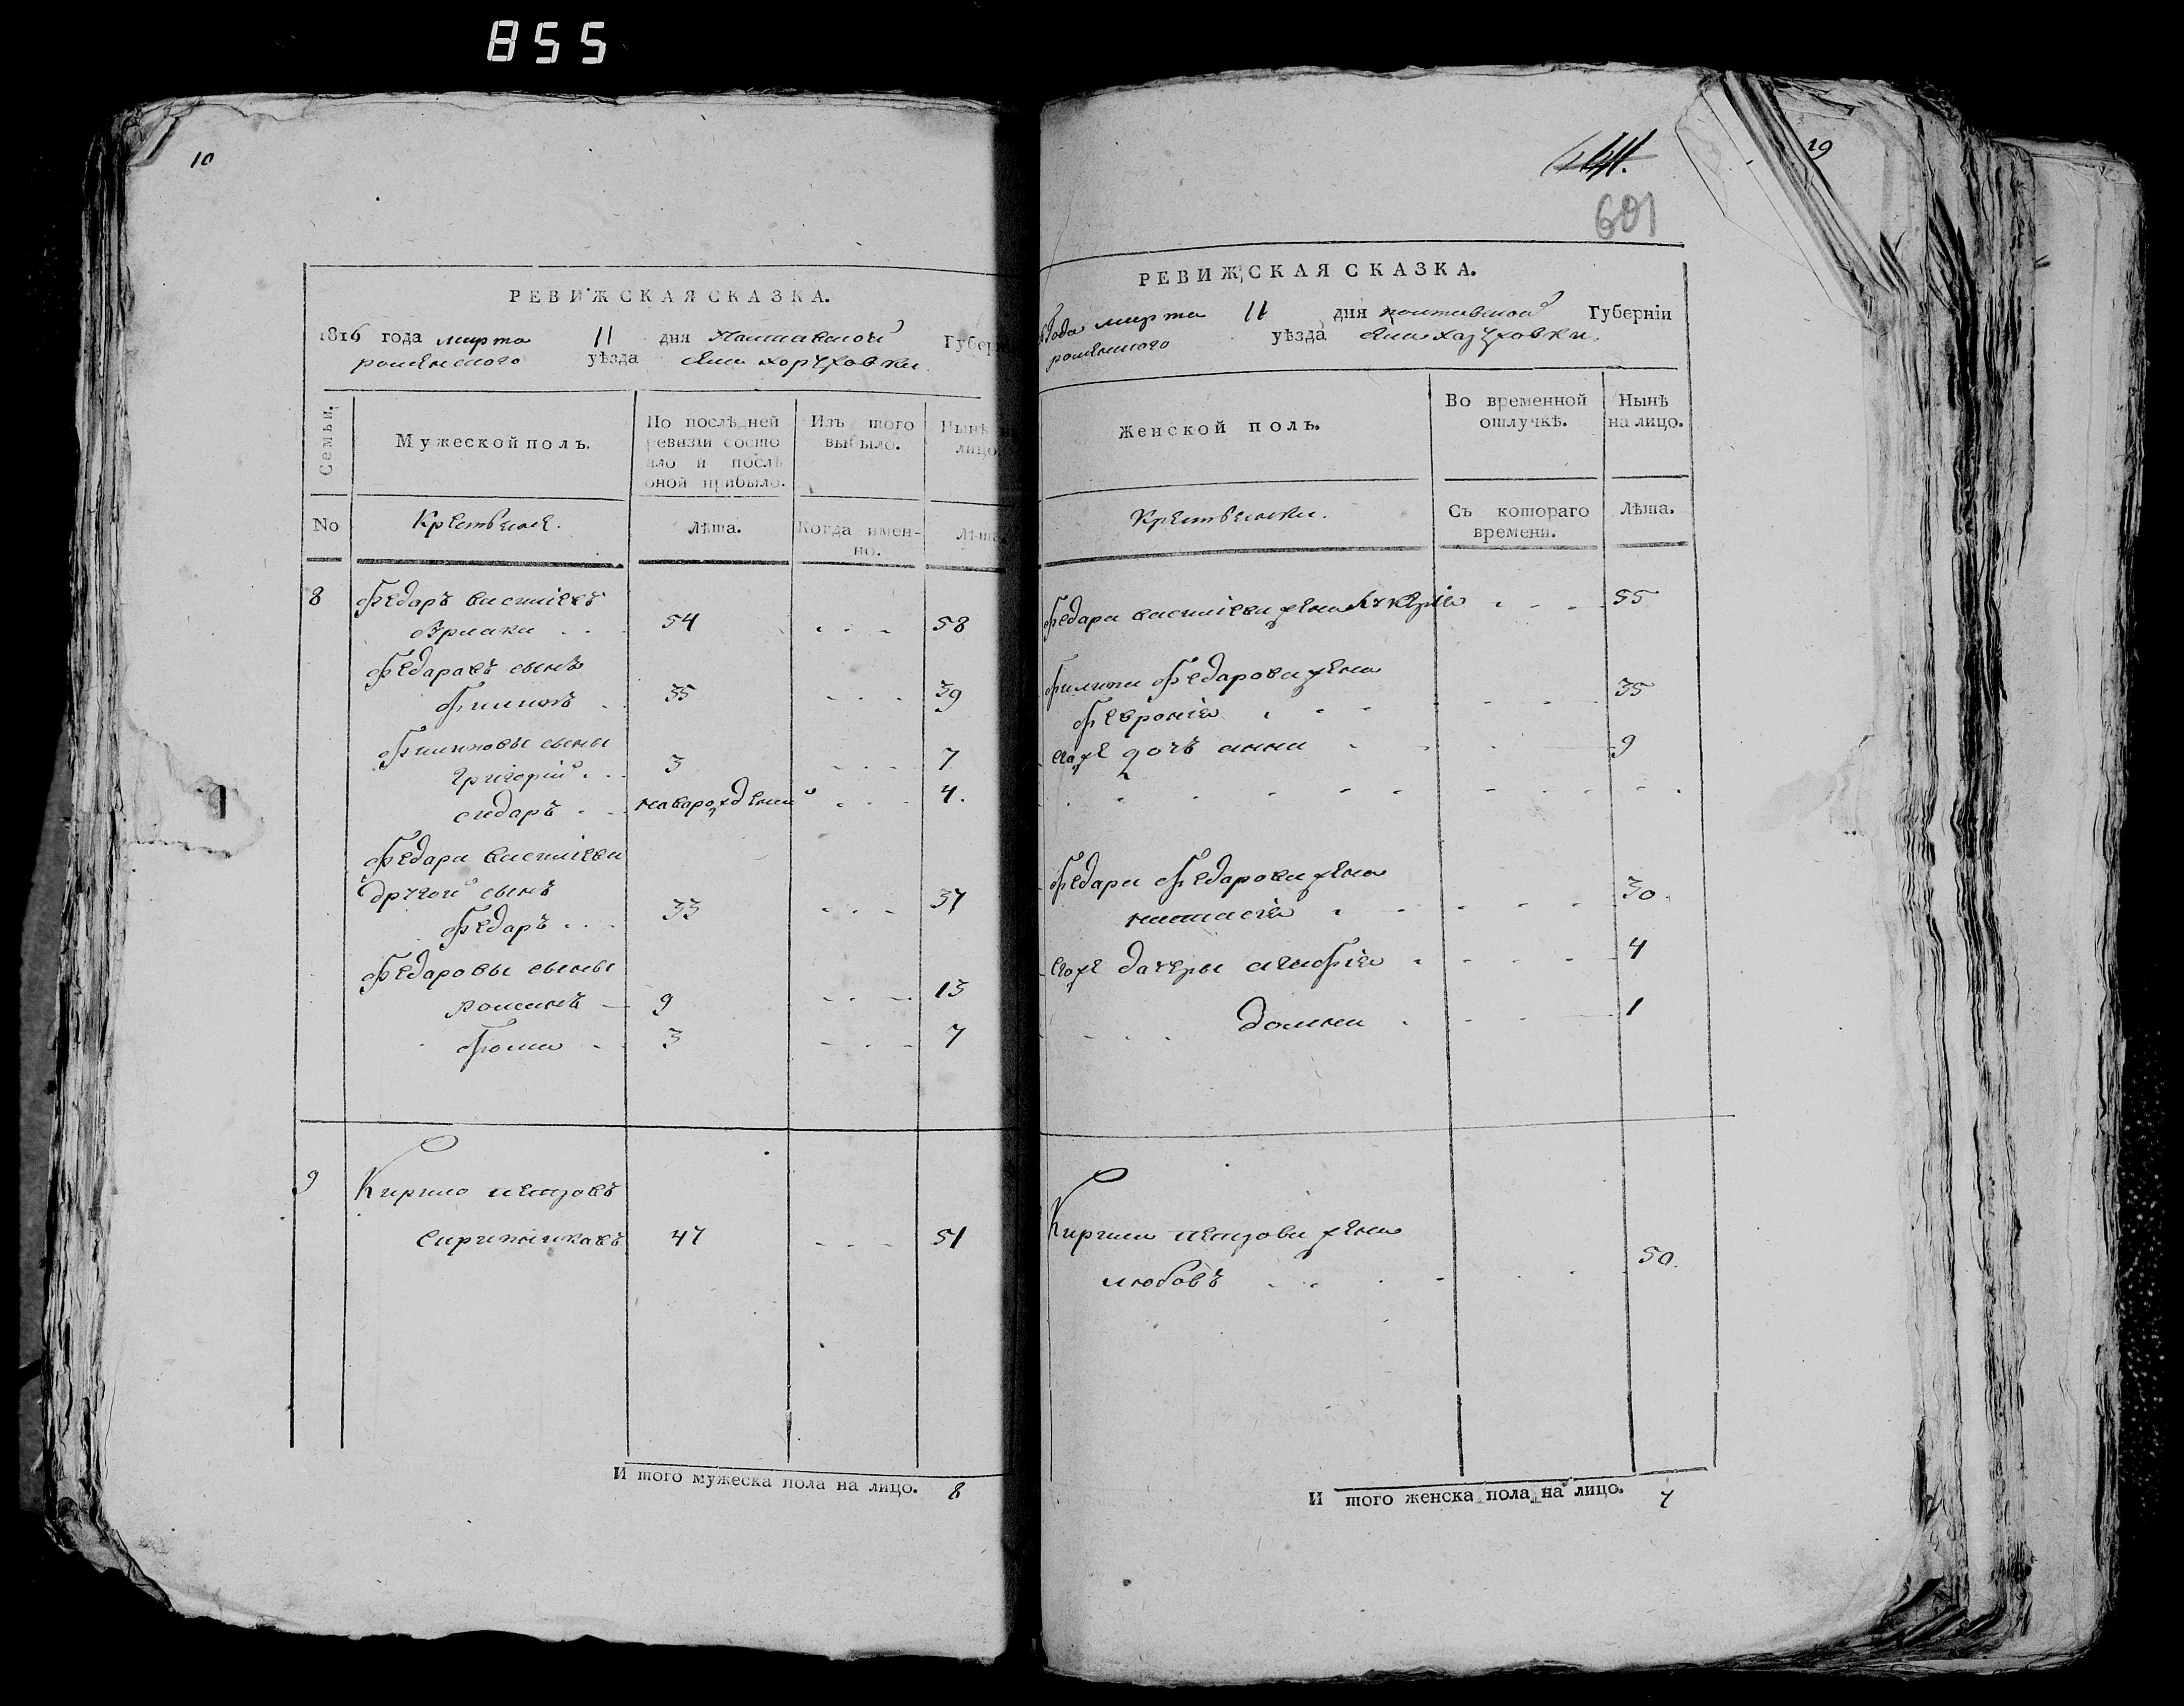 855
10
РЕВИЖСКАЯ СКАЗКА.
1816 года марта 11 дня Полтавской Губер
роменского уѣзда села хоружовки.
Семьи.
Мужеской полъ.
По послѣдней ревизіи состояло и послѣ оной прибыло.
Изъ того выбыло.
Нынѣ на лицо
No
Крестьяне.
Лѣта.
Когда именно.
Лѣта
8 Федаръ васильевъ
54 58
Федаравъ сынъ
Филипъ 35 39
Филиповы сыны
Григорій 3 7
сидаръ новарожденный 4.
Федара васильева
другой сынъ
Федаръ 33 37
Федаровы сыны
романъ 9 13
Фома 3 7
9 Кирило
47 51
И того мужеска пола на лицо. 8
601
19
РЕВИЖСКАЯ СКАЗКА.
года марта 11 дня полтавской Губерніи
роменского уѣзда села хоружовки.
Женской полъ.
Во временной отлучкѣ.
Нынѣ на лицо.
Крестьянки.
Съ котораго времени.
Лѣта.
Федара васильева жена лукерія 55
Филипа Федарова жена
Феврония 35
егоже дочь анна 9
Федара Федарова жена
настасія 30.
егоже дочеры агафія 4
Домна 1
Кирила жена
любовъ 50.
И того женска пола на лицо. 7